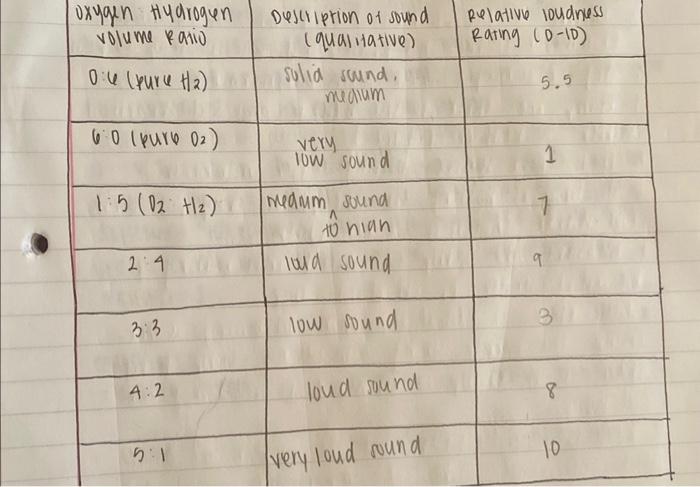 Oxygen: Hydrogen
volume Ratio
Description of sound
(qualitative)
Relative loudness
Rating (0-10)
0:6 (pure H2)
solid sound,
medium
5.5
6:0 (pure O2)
very
low sound
1
1:5 (O2: H2)
medium sound
to high
7
2:4
loud sound
9
3:3
low sound
3
4:2
loud sound
8
5:1
very loud sound
10